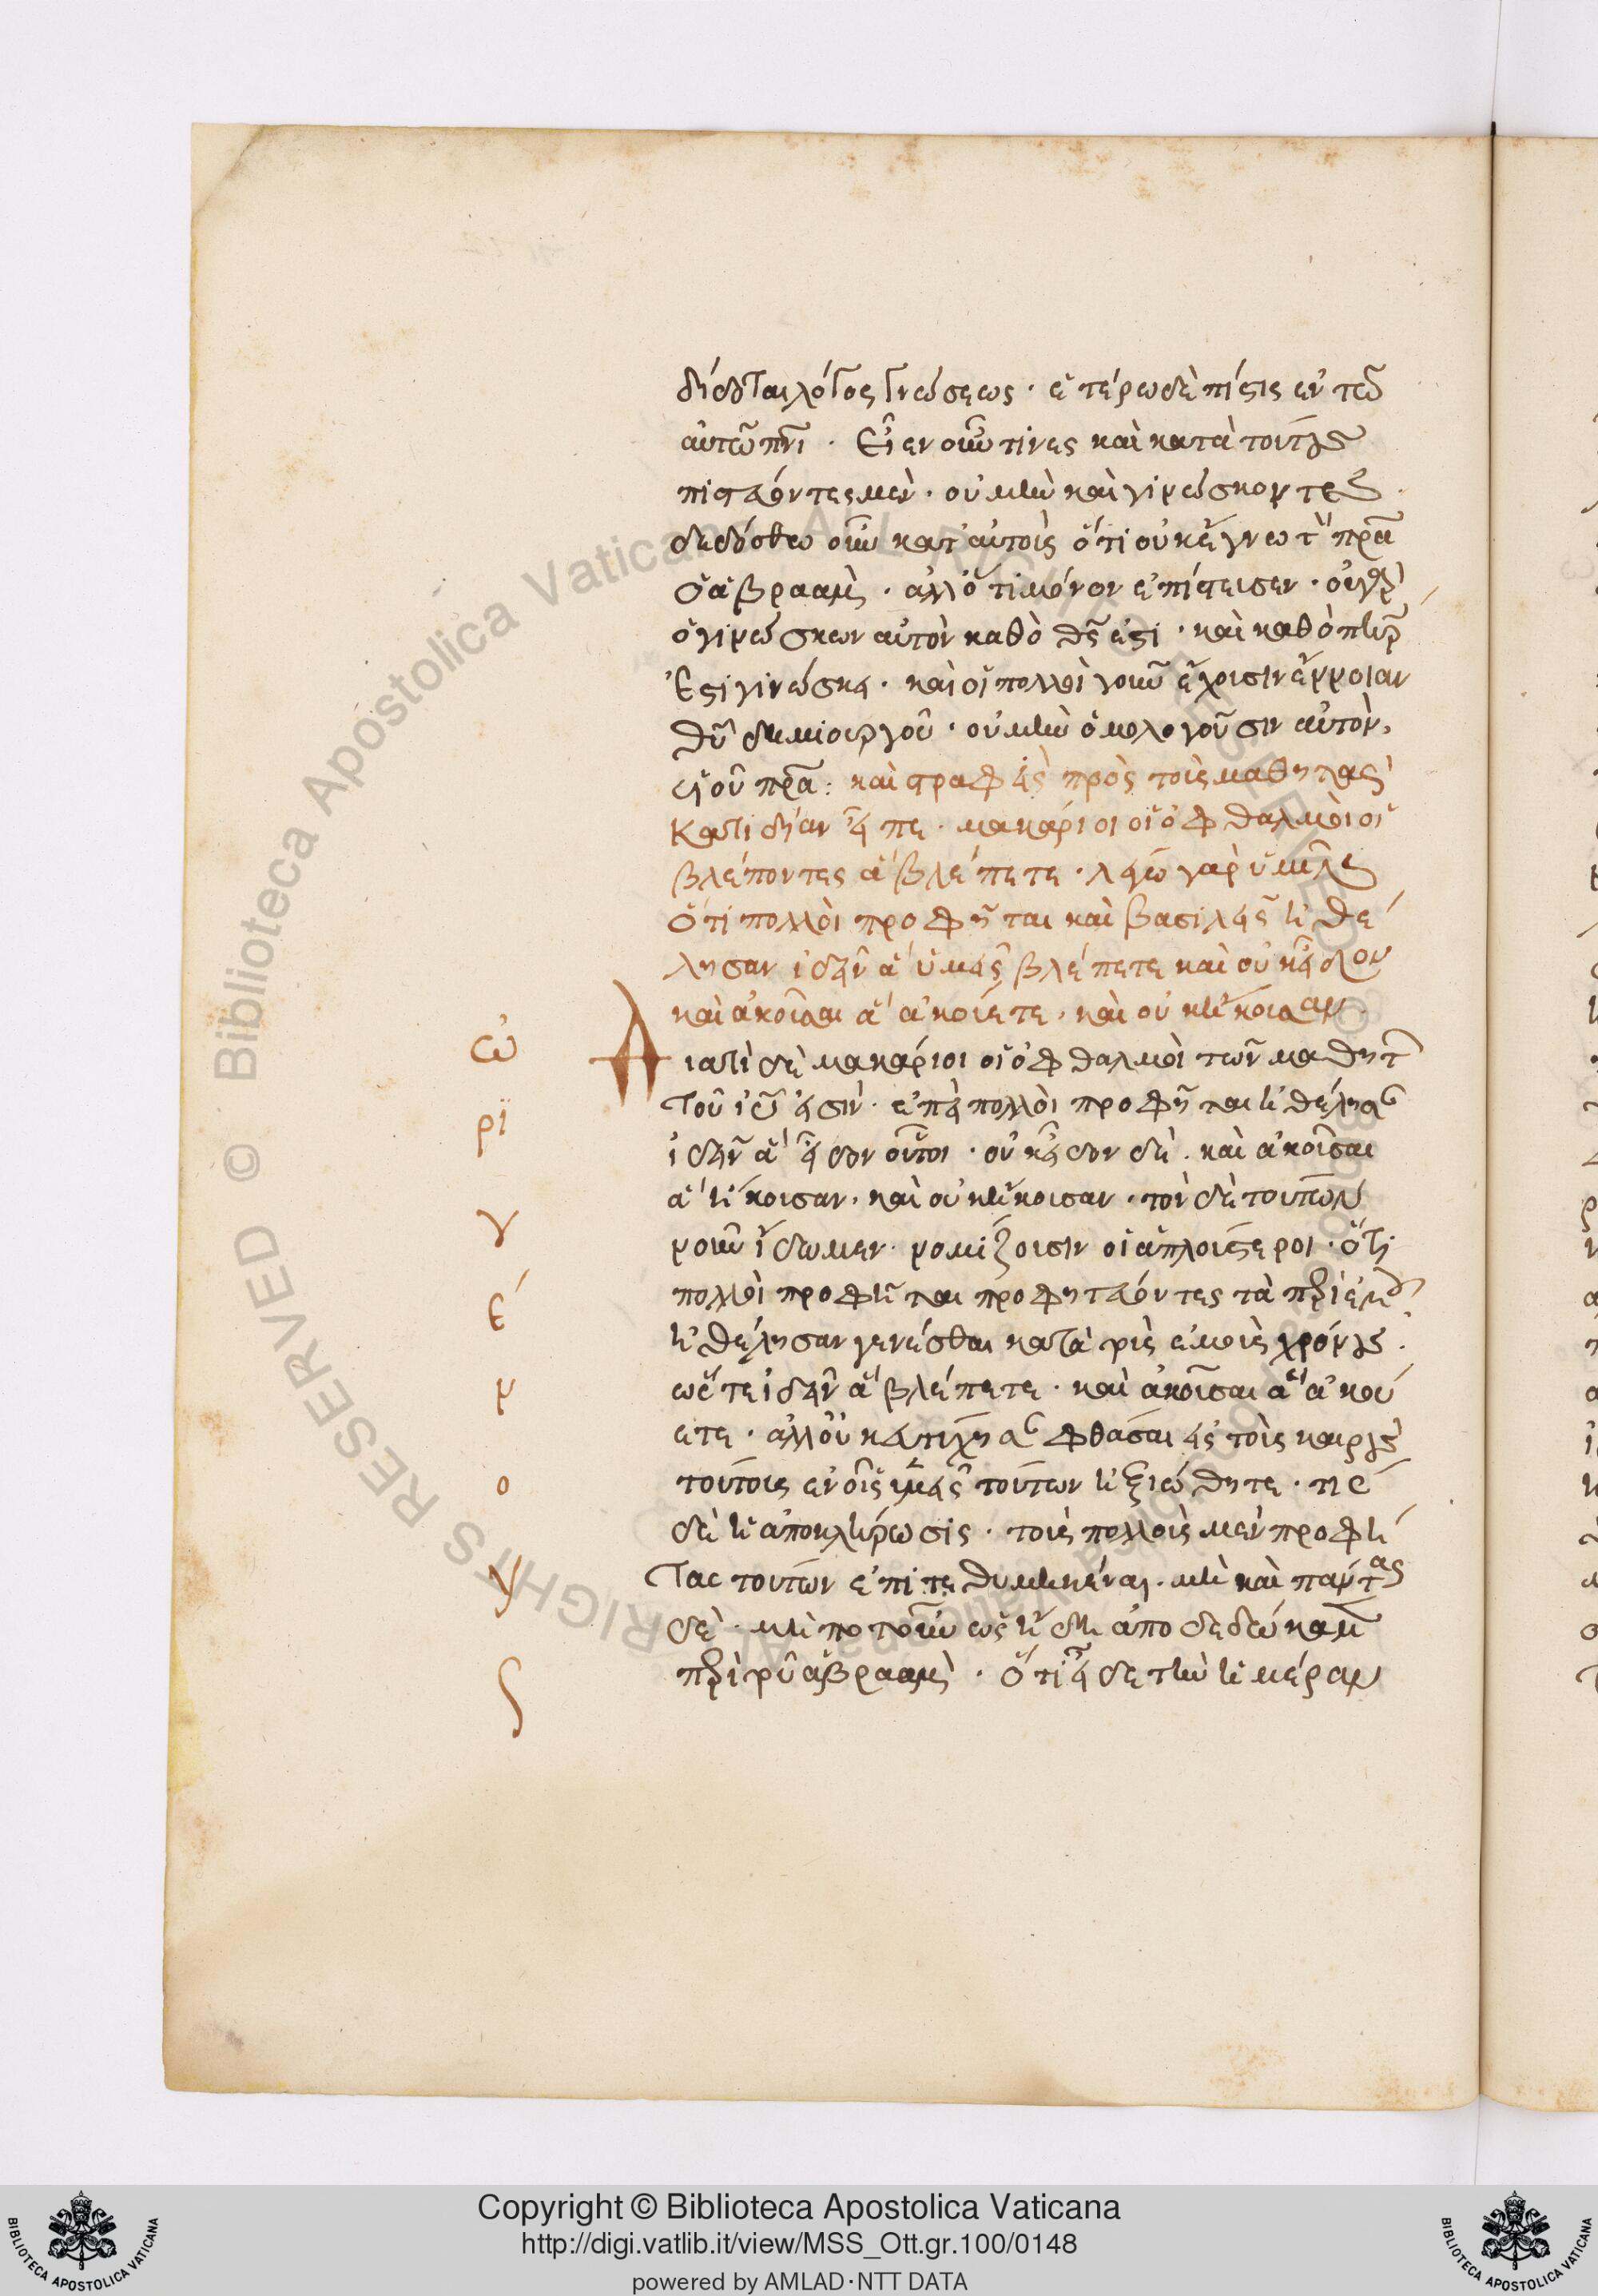 δίδοται λόγος γνώσεως · ἑτέρω δὲ πίστις ἐν τῶ
αὐτῶ πνι · εἶεν οὖν τινες καὶ κατὰ τούτους
πιστεύοντες μὲν · οὐ μὴν καὶ γινώσκοντες ·
δεδόσθω οὖν κατ' αὐτοὺς ὅτι οὐκ ἔγνω τ πρα
ὁ ἀβραὰμ · ἀλλ' ὅτι μόνον ἐπίστευσεν · οὐ γὰρ
ὁ γινώσκων αὐτὸν καθὸ θς ἐστι · καὶ καθὸ πηρ
ἐστι γινώσκει · καὶ οἱ πολλοὶ γοῦν ἔχουσιν ἔννοιαν
θυ δημιουργοῦ · οὐ μὴν ὁμολογοῦσιν αὐτὸν
υἱοῦ πρα : καὶ στραφεὶς πρὸς τοὺς μαθητὰς
κατιδίαν εἶπε · μακάριοι οἱ ὀφθαλμοὶ οἱ
βλέποντες ἃ βλέπετε · λέγω γὰρ ὑμῖν
ὅτι πολλοὶ προφῆται καὶ βασιλεῖς ἠθέ
λησαν ἰδεῖν ἃ ὑμεῖς βλέπετε καὶ οὐκ εἶδον
καὶ ἀκοῦσαι ἃ ἀκούετε · καὶ οὐκ ἤκουσαν ·
Διατὶ δὲ μακάριοι οἱ ὀφθαλμοὶ τῶν μαθητ
τοῦ ιυ εἰσίν · ἐπεὶ πολλοὶ προφῆται ἠθέλησαν
ἰδεῖν ἃ εἶδον οὗτοι · οὐκ εἶδον δὲ · καὶ ἀκοῦσαι
ἃ ἤκουσαν · καὶ οὐκ ἤκουσαν · τὸν δὲ τούτων
νοῦν ἴδωμεν · νομίζουσιν οἱ ἁπλούστεροι · ὅτι
πολλοὶ προφῆται προφητεύοντες τὰ περὶ
ἠθέλησαν γενέσθαι κατὰ τοὺς ἐμοὺς χρόνους ·
ὥστε ἰδεῖν ἃ βλέπετε · καὶ ἀκοῦσαι ἃ ἀκού
ετε · ἀλλ' οὐκ εὐτύχησαν φθάσαι εἰς τοὺς καιροὺς
τούτους ἐν οἷς ὑμεῖς τούτων ἠξιώθητε · τίς
δὲ ἡ ἀποκλήρωσις · τοὺς πολλοὺς μὲν προφή
τας τούτων ἐπιτεθυμηκέναι · μὴ καὶ πάντας
δέ · μήποτ' οὖν ὡς ἤδη ἀποδεδώκαμεν
περὶ τοῦ ἀβραὰμ · ὅτι εἶδε τὴν ἡμέραν
ὠ
ρι
γ
έ
ν
ο
υ
ς
Copyright © Biblioteca Apostolica Vaticana
http://digi.vatlib.it/view/MSS_Ott.gr.100/0148
powered by AMLAD·NTT DATA
BIBLIOTECA APOSTOLICA VATICANA
BIBLIOTECA APOSTOLICA VATICANA